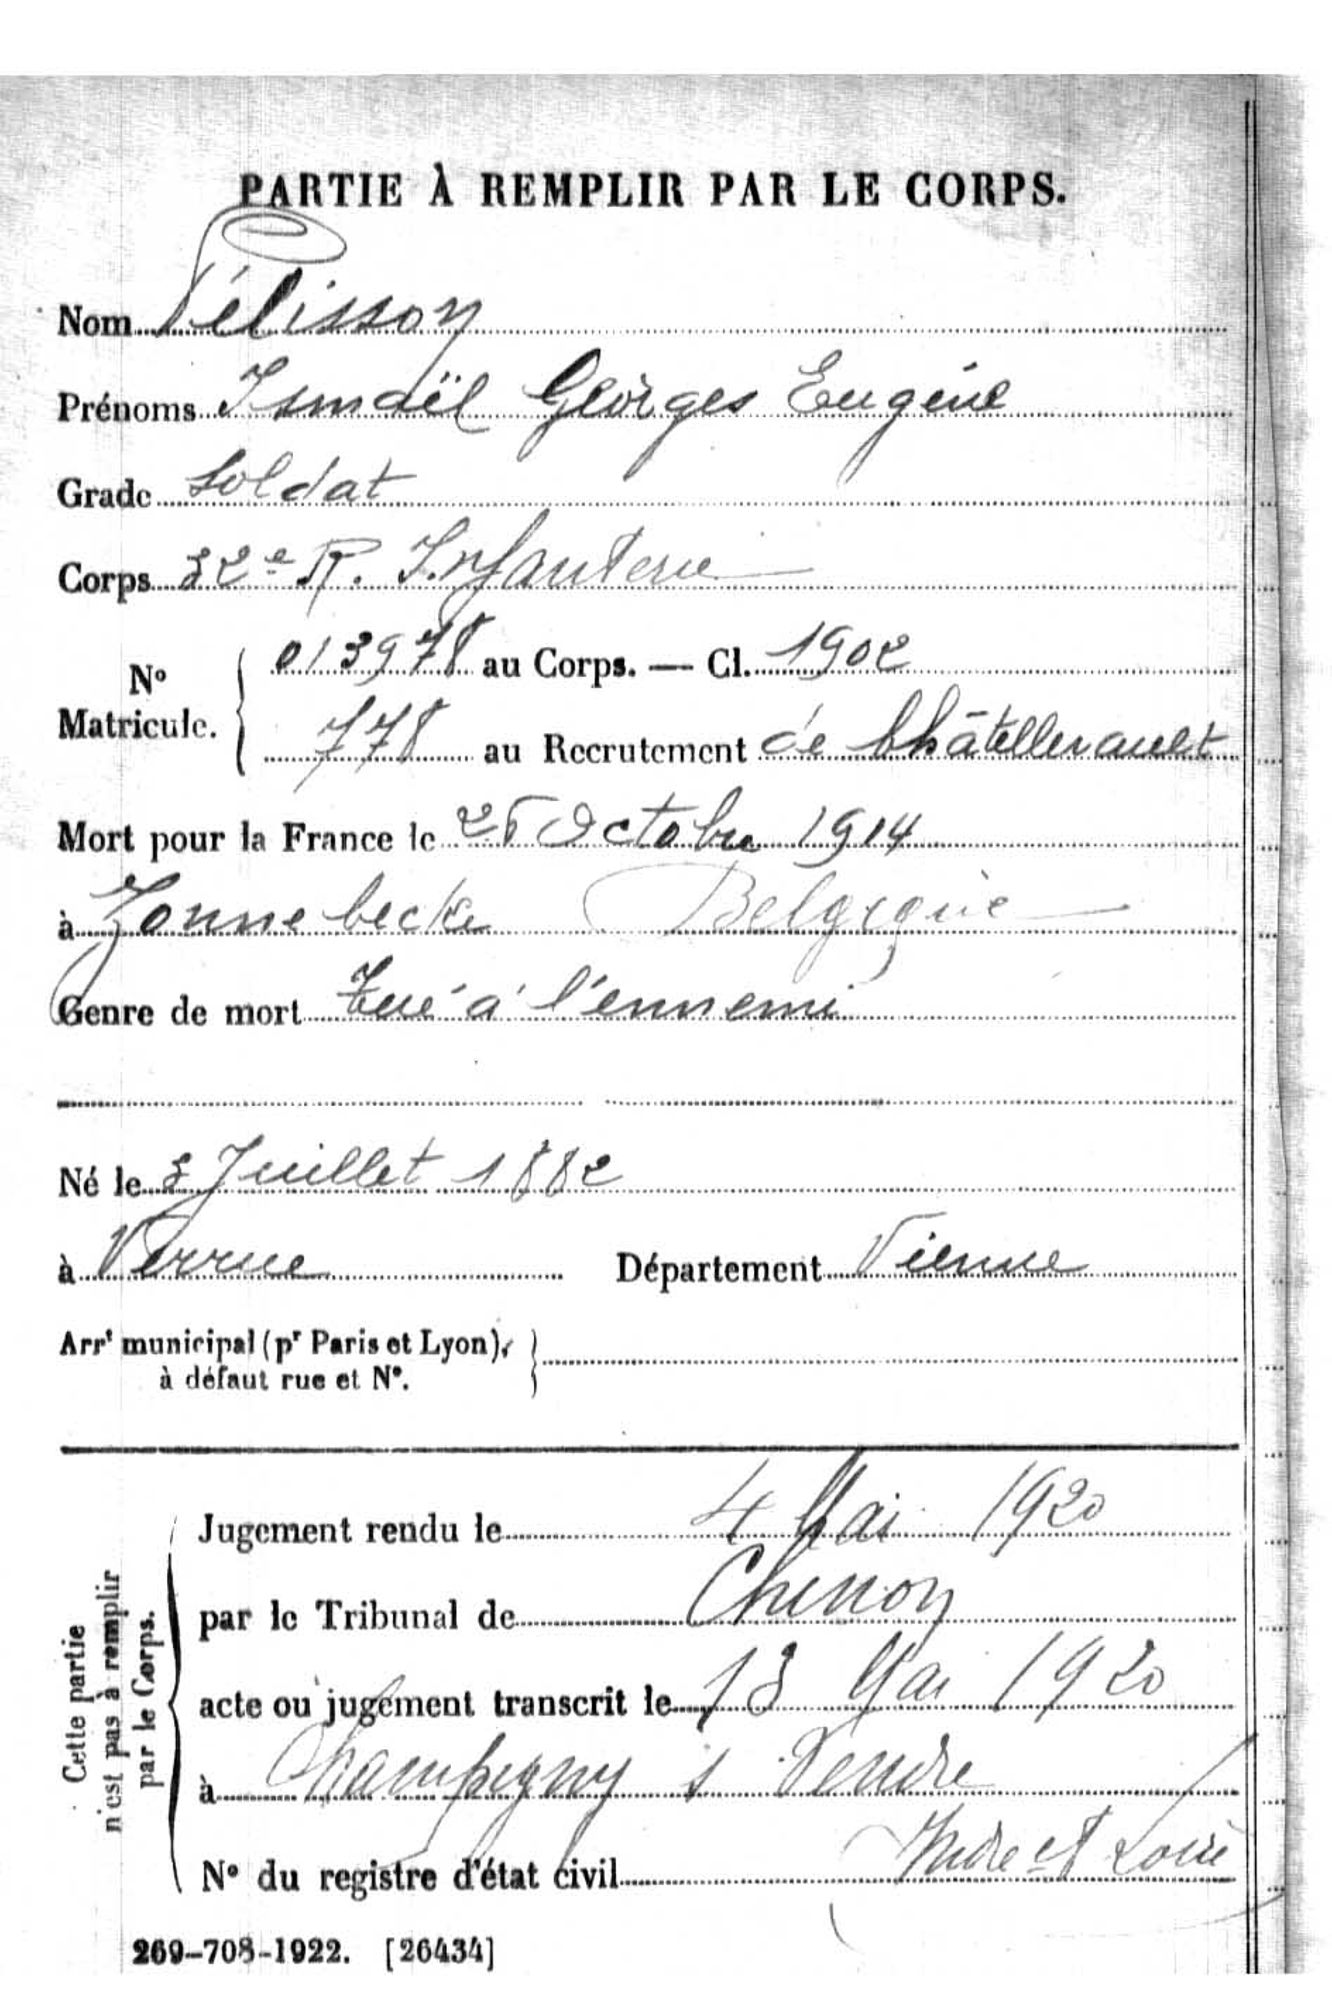 PARTIE À REMPLIR PAR LE CORPS.
Nom Pélisson
Prénoms Ismaël Georges Eugène
Grade Soldat
Corps 32e R. Infanterie
No Matricule. { 013978 au Corps. — Cl. 1902
778 au Recrutement de Châtellerault
Mort pour la France le Octobre 1914
à Zonnebecke Belgique
Genre de mort Tué à l'ennemi
Né le Juillet 1882
à Verrue Département Vienne
Arrt municipal (pr Paris et Lyon),
à défaut rue et No.
Cette partie
n'est pas à remplir
par le Corps.
Jugement rendu le 4 Mai 1920
par le Tribunal de Chinon
acte ou jugement transcrit le 13 Mai 1920
à Champigny s Veude
Indre et Loire
No du registre d'état civil
269-708-1922. [26434]